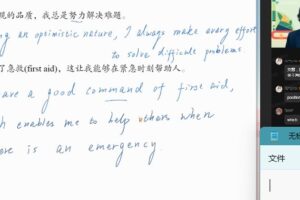 观的品质，我总是努力解决难题。
ng an optimistic nature, I always make every effort
to solve difficult problems.
了急救(first aid)，这让我能够在紧急时刻帮助人。
ave a good command of first aid,
ch enables me to help others when
ere is an emergency.
文件